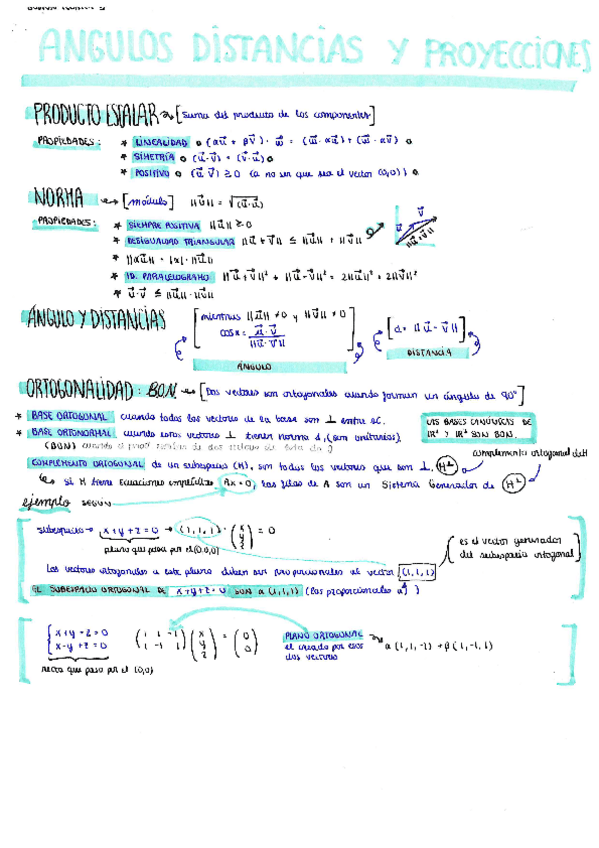 ANGULOS DISTANCIAS Y PROYECCIONES
PRODUCTO ESCALAR → [suma del producto de los componentes]
PROPIEDADES:
* LINEALIDAD (αū + βv̄) · w̄ = (w̄ · αū) + (w̄ · βv̄)
* SIMETRÍA (ū·v̄) = (v̄·ū)
* POSITIVO (ū·v̄) ≥ 0 (a no ser que sea el vector (0,0))
NORMA → [módulo] ||ū|| = √(ū·ū)
PROPIEDADES:
* SIEMPRE POSITIVA ||ū|| ≥ 0
* DESIGUALDAD TRIANGULAR ||ū + v̄|| ≤ ||ū|| + ||v̄||
* ||αū|| = |α|·||ū||
* ID. PARALELOGRAMO ||ū + v̄||² + ||ū - v̄||² = 2||ū||² + 2||v̄||²
* ū·v̄ ≤ ||ū||·||v̄||
ÁNGULO Y DISTANCIAS
[mientras ||ū|| ≠ 0 y ||v̄|| ≠ 0
cos α = ū·v̄ / ||ū·v̄||]
ÁNGULO
[d = ||ū - v̄||]
DISTANCIA
ORTOGONALIDAD: BON. → [Dos vectores son ortogonales cuando forman un ángulo de 90°]
* BASE ORTOGONAL cuando todos los vectores de la base son ⊥ entre sí.
* BASE ORTONORMAL cuando estos vectores ⊥ tienen norma 1, (son unitarios).
(BON)
LAS BASES CANÓNICAS DE
R² Y R³ SON BON.
COMPLEMENTO ORTOGONAL de un subespacio (H), son todos los vectores que son ⊥. H⊥
complemento ortogonal de H
Si H tiene Ecuaciones implícitas Ax = 0, las filas de A son un Sistema Generador de H⊥
ejemplo según
subespacio → x+y+z=0 → (1,1,1)·(x y z) = 0
plano que pasa por el (0,0,0)
es el vector generador
del subespacio ortogonal
Los vectores ortogonales a este plano deben ser proporcionales al vector (1,1,1)
EL SUBESPACIO ORTOGONAL DE x+y+z=0 SON α(1,1,1) (los proporcionales a )
{x+y-z=0
x-y+z=0
(1 1 -1
1 -1 1) (x y z) = (0 0)
recta que pasa por el (0,0)
PLANO ORTOGONAL
el creado por esos
dos vectores
α(1,1,-1) + β(1,-1,1)